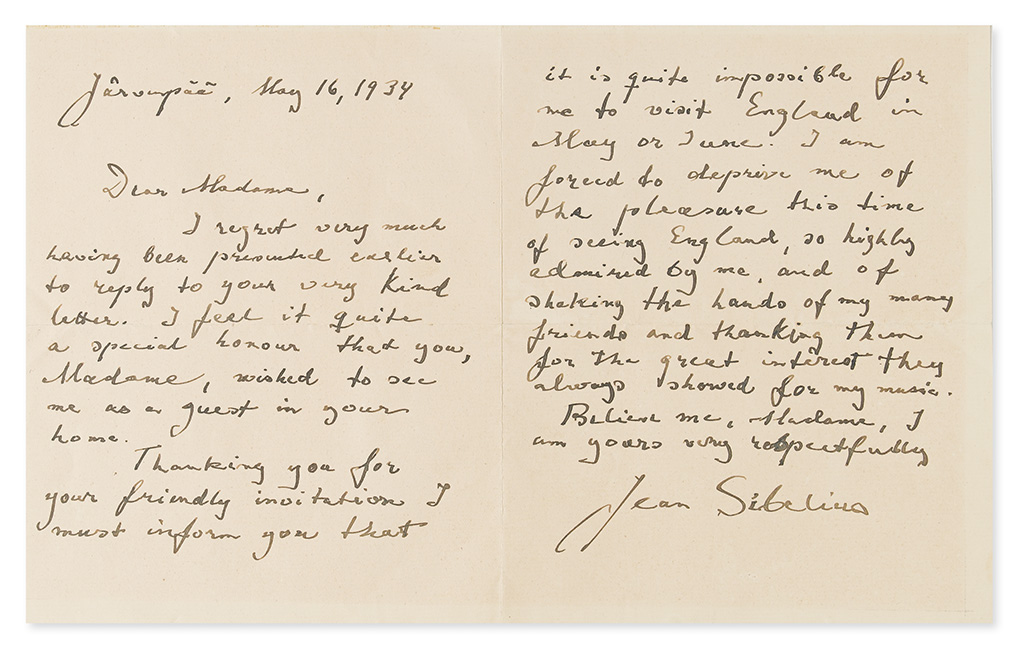 Järvenpää, May 16, 1934
Dear Madame,
I regret very much
having been prevented earlier
to reply to your very kind
letter. I feel it quite
a special honour that you,
Madame, wished to see
me as a guest in your
home.
Thanking you for
your friendly invitation I
must inform you that
it is quite impossible for
me to visit England in
May or June. I am
forced to deprive me of
the pleasure this time
of seeing England, so highly
admired by me, and of
shaking the hands of my many
friends and thanking them
for the great interest they
always showed for my music.
Believe me, Madame, I
am yours very respectfully
Jean Sibelius